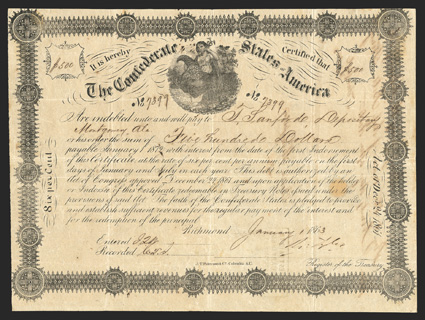 $500
It is hereby Certified that
$500
The Confederate States of America
No 7399 No 7399
Are indebted unto and will pay to T. Sanford Depositary
Montgomery Ala.
or his order the sum of Five hundred Dollars
payable
this Certificate at the rate of six per cent per annum payable on the first
days of January and July in each year. This debt is authorized by an
Act of Congress approved December 24 1861 and upon application of the holder
or Indorsee of this Certificate redeemable in Treasury Notes issued under the
provisions of said Act. The faith of the Confederate States is pledged to provide
and establish sufficient revenues for the regular payment of the interest and
for the redemption of the principal.
Richmond January 1863
Entered
Recorded
Register of the Treasury
Six per Cent